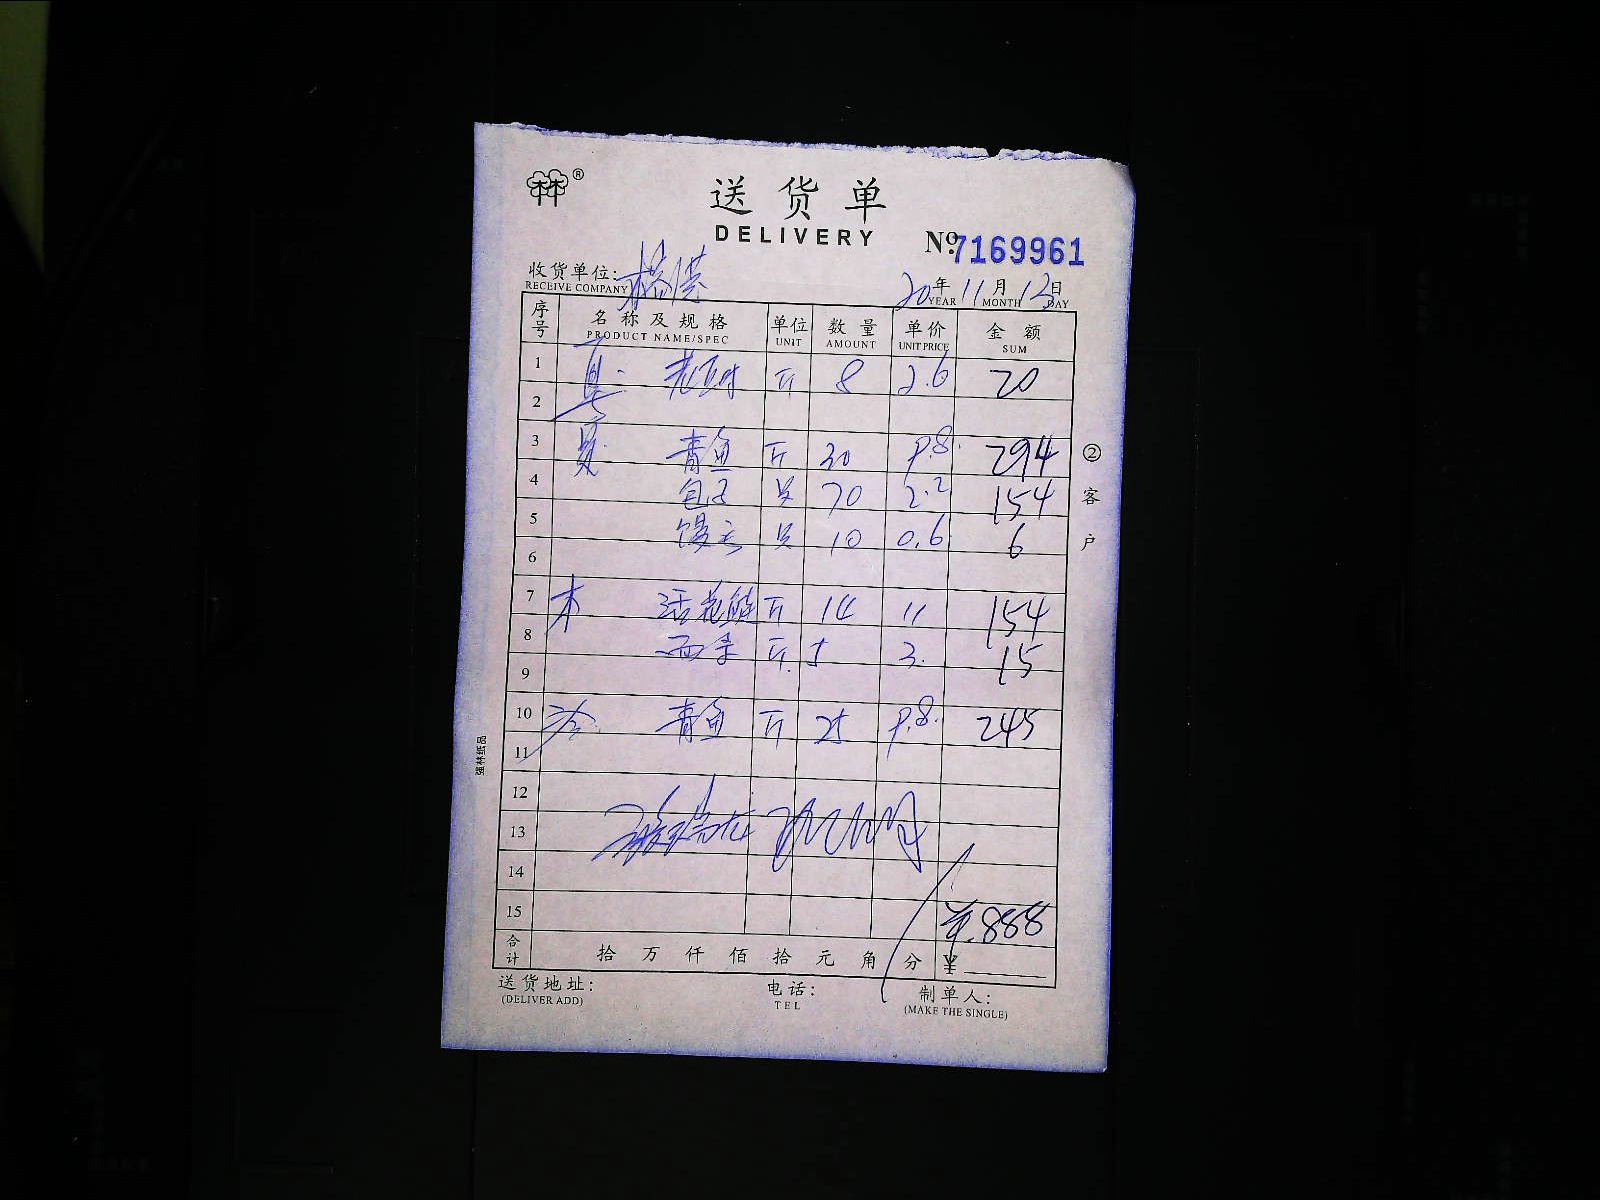 林林®
送货单
DELIVERY
Nº 7169961
收货单位: 杨洪
RECEIVE COMPANY
20年11月13日
YEAR MONTH DAY
序号 名称及规格 单位 数量 单价 金额
PRODUCT NAME/SPEC UNIT AMOUNT UNIT PRICE SUM
1 斤 8 2.6 20
2
3 青鱼 斤 30 9.8 294
4 包子 只 70 2.2 154
5 馒头 只 10 0.6 6
6
7 木 活花鲢 斤 14 11 154
8 西芹 斤 5 3. 15
9
10 冷 青鱼 斤 25 9.8 245
11
12
13
14
15 ¥888
合计 拾 万 仟 佰 拾 元 角 分 ¥
送货地址: 电话: 制单人:
(DELIVER ADD) TEL (MAKE THE SINGLE)
②客户
强林纸品